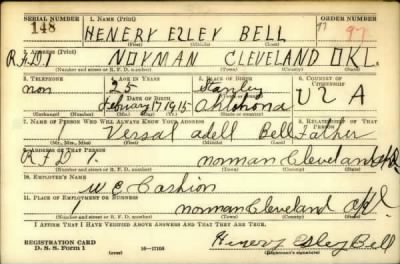 SERIAL NUMBER
1. NAME (Print)
ORDER NUMBER
148
HENERY EZLEY BELL
97
(First) (Middle) (Last)
2. ADDRESS (Print)
R.F.D.1 NORMAN CLEVELAND OKL.
(Number and street or R. F. D. number) (Town) (County) (State)
3. TELEPHONE
4. AGE IN YEARS
5. PLACE OF BIRTH
6. COUNTRY OF CITIZENSHIP
non
25
Stanley
DATE OF BIRTH
(Town or county)
USA
February 17 1915
Oklahoma
(Exchange) (No.)
(Mo.) (Day) (Yr.)
(State or country)
7. NAME OF PERSON WHO WILL ALWAYS KNOW YOUR ADDRESS
8. RELATIONSHIP OF THAT PERSON
Versal adell Bell Father
(Mr., Mrs., Miss) (First) (Middle) (Last)
9. ADDRESS OF THAT PERSON
R.F.D 1. norman Cleveland okl.
(Number and street or R. F. D. number) (Town) (County) (State)
10. EMPLOYER'S NAME
W E Cashion
11. PLACE OF EMPLOYMENT OR BUSINESS
norman Cleveland okl.
(Number and street or R. F. D. number) (Town) (County) (State)
I AFFIRM THAT I HAVE VERIFIED ABOVE ANSWERS AND THAT THEY ARE TRUE.
REGISTRATION CARD
D. S. S. Form 1
16—17105
Henery Esley Bell
(Registrant's signature)